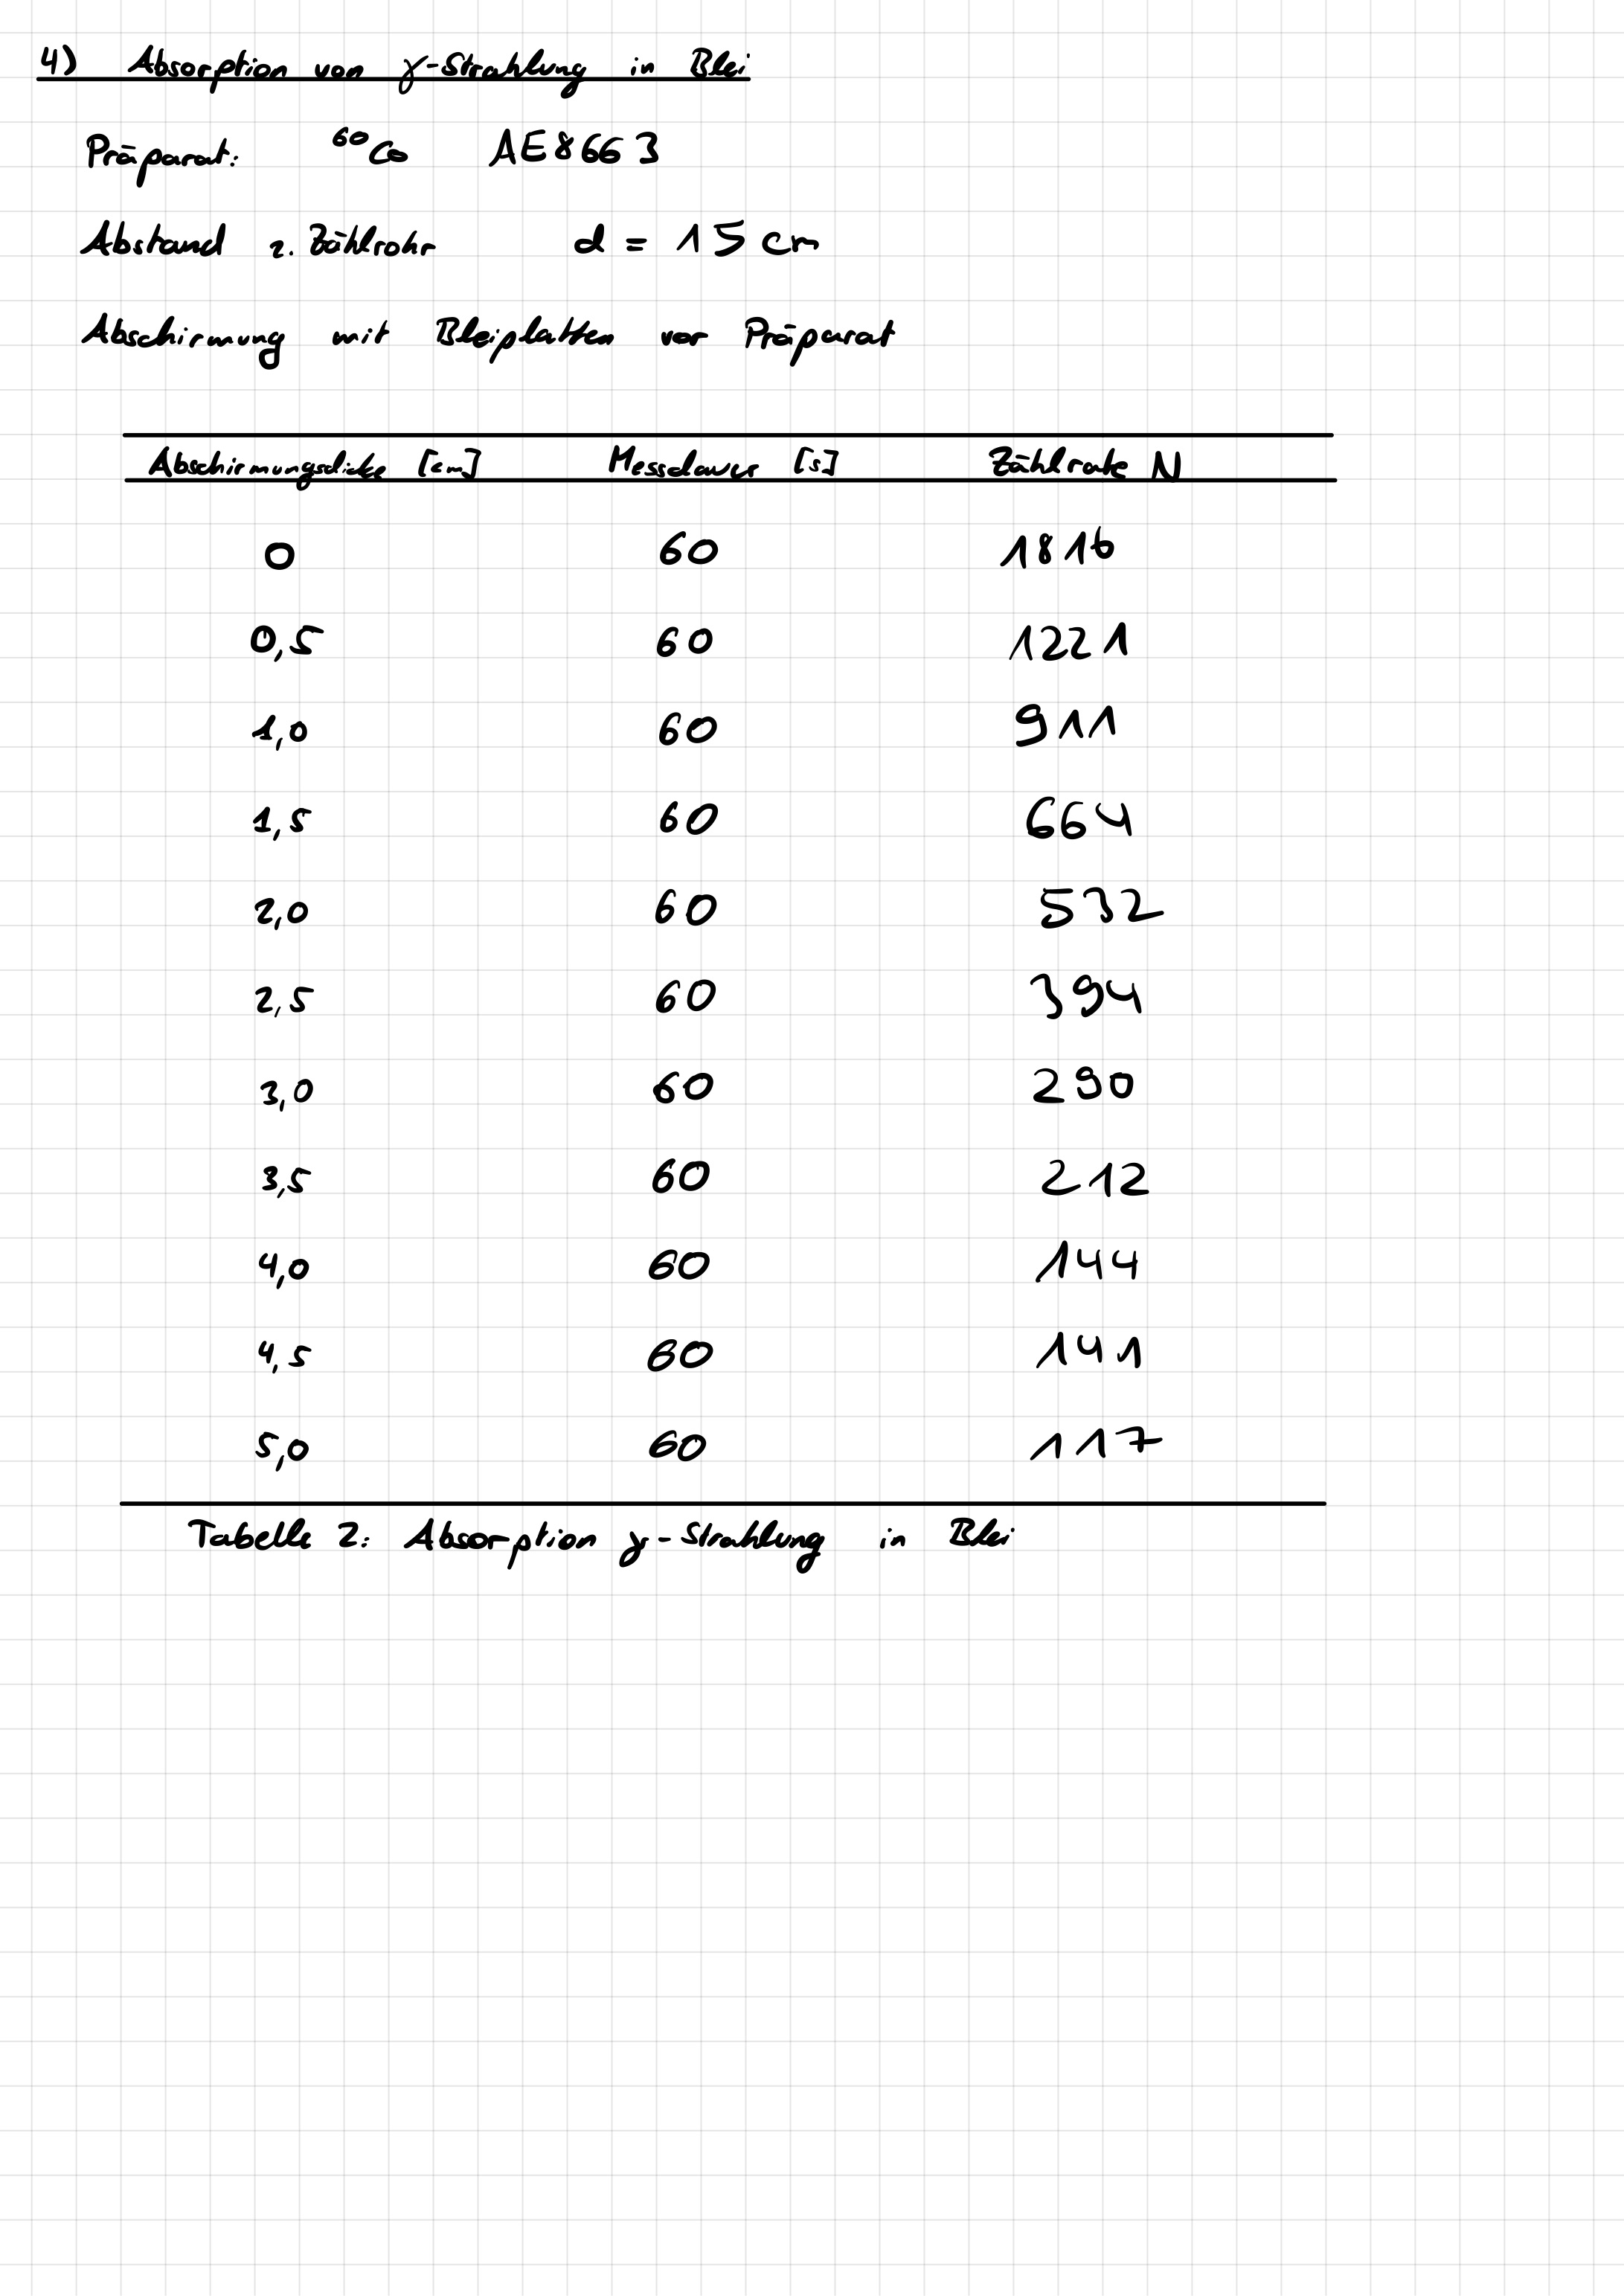 4) Absorption von γ-Strahlung in Blei
Präparat: ⁶⁰Co AE8663
Abstand z. Zählrohr d = 15 cm
Abschirmung mit Bleiplatten vor Präparat
Abschirmungsdicke [cm] Messdauer [s] Zählrate N
0 60 1816
0,5 60 1221
1,0 60 911
1,5 60 664
2,0 60 532
2,5 60 394
3,0 60 290
3,5 60 212
4,0 60 144
4,5 60 141
5,0 60 117
Tabelle 2: Absorption γ-Strahlung in Blei